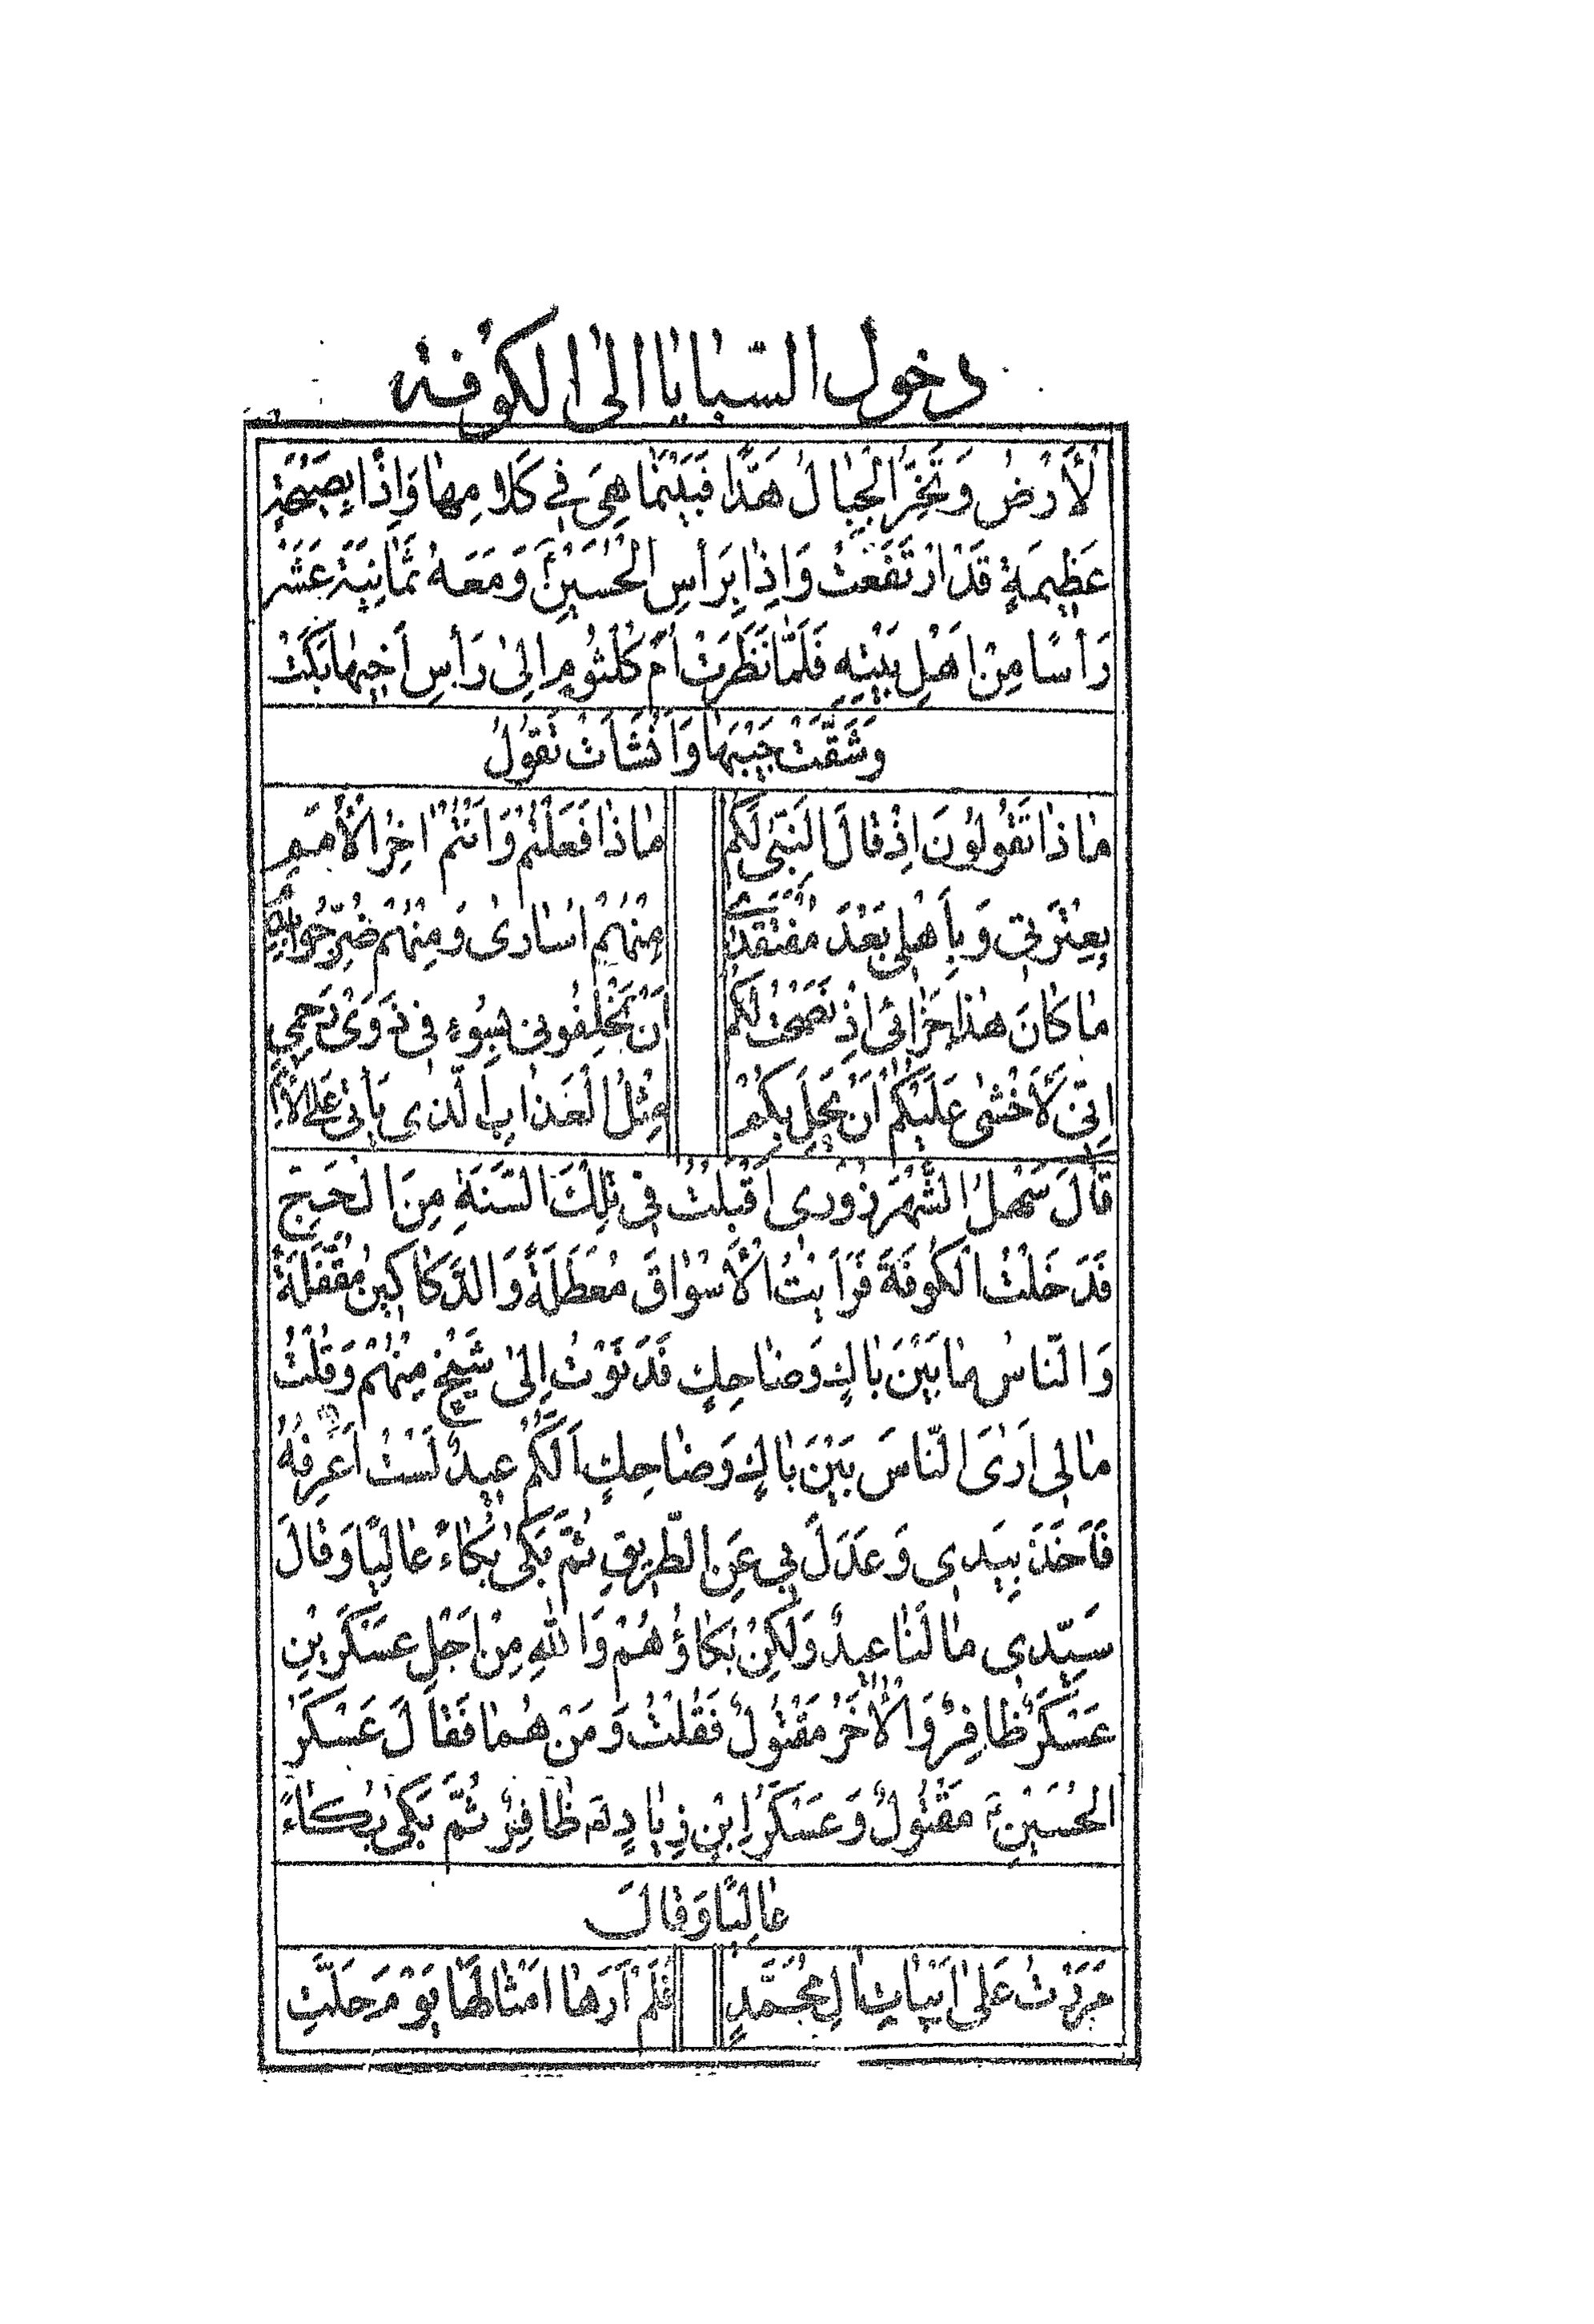 دخول السبايا الى الكوفة
لْأَرْضُ وَتَخِرُّ الْجِبٰالُ هَدًّا فَبَيْنَمٰا هِىَ فِي كَلٰامِهٰا وَإِذٰا بِصَيْحَةٍ
عَظِيمَةٍ قَدْ ارْتَفَعَتْ وَإِذٰا بِرَأْسِ الْحُسَيْنِ ع وَمَعَهُ ثَمٰانِيَةَ عَشَرَ
رَأْسًا مِنْ اَهْلِ بَيْتِهِ فَلَمّٰا نَظَرَتْ اُمُّ كُلْثُومٍ اِلىٰ رَأْسِ اَخِيهٰا بَكَتْ
وَشَقَّتْ جَيْبَهٰا وَاَنْشَأَتْ تَقُولُ
مٰاذٰا تَقُولُونَ اِذْ قٰالَ النَّبِىُّ لَكُمْ مٰاذٰا فَعَلْتُمْ وَاَنْتُمْ اٰخِرُ الْأُمَمِ
بِعِتْرَتِى وَبِأَهْلِى بَعْدَ مُفْتَقَدِى مِنْهُمْ اُسٰارىٰ وَمِنْهُمْ ضُرِّجُوا بِدَمِ
مٰا كٰانَ هٰذٰا جَزٰائِى اِذْ نَصَحْتُ لَكُمْ اَنْ تَخْلِفُونِى بِسُوءٍ فِى ذَوِى رَحِمِى
اِنِّى لَأَخْشىٰ عَلَيْكُمْ اَنْ يَحِلَّ بِكُمْ مِثْلُ الْعَذٰابِ الَّذِى يَأْتِى عَلَى الْأُمَمِ
قٰالَ سَهْلُ الشَّهْرَزُورِى اَقْبَلْتُ فِى تِلْكَ السَّنَةِ مِنَ الْحَجِّ
فَدَخَلْتُ الْكُوفَةَ فَرَأَيْتُ الْأَسْوٰاقَ مُعَطَّلَةً وَالدَّكٰاكِينَ مُقَفَّلَةً
وَالنّٰاسُ مٰا بَيْنَ بٰاكٍ وَضٰاحِكٍ فَدَنَوْتُ اِلىٰ شَيْخٍ مِنْهُمْ وَقُلْتُ
مٰالِى اَرَى النّٰاسَ بَيْنَ بٰاكٍ وَضٰاحِكٍ اَلَكُمْ عِيدٌ لَسْتُ اَعْرِفُهُ
فَأَخَذَ بِيَدِى وَعَدَلَ بِي عَنِ الطَّرِيقِ ثُمَّ بَكىٰ بُكٰاءً عٰالِيًا وَقٰالَ
سَيِّدِى مٰا لَنٰا عِيدٌ وَلٰكِنْ بُكٰاؤُهُمْ وَاللهِ مِنْ اَجْلِ عَسْكَرَيْنِ
عَسْكَرٌ ظٰافِرٌ وَالْاٰخَرُ مَقْتُولٌ فَقُلْتُ وَمَنْ هُمٰا فَقٰالَ عَسْكَرُ
الْحُسَيْنِ ع مَقْتُولٌ وَعَسْكَرُ اِبْنِ زِيٰادٍ ظٰافِرٌ ثُمَّ بَكىٰ بُكٰاءً
عٰالِيًا وَقٰالَ
مَرَرْتُ عَلىٰ اَبْيٰاتِ اٰلِ مُحَمَّدٍ فَلَمْ اَرَهٰا اَمْثٰالَهٰا يَوْمَ حَلَّتِ